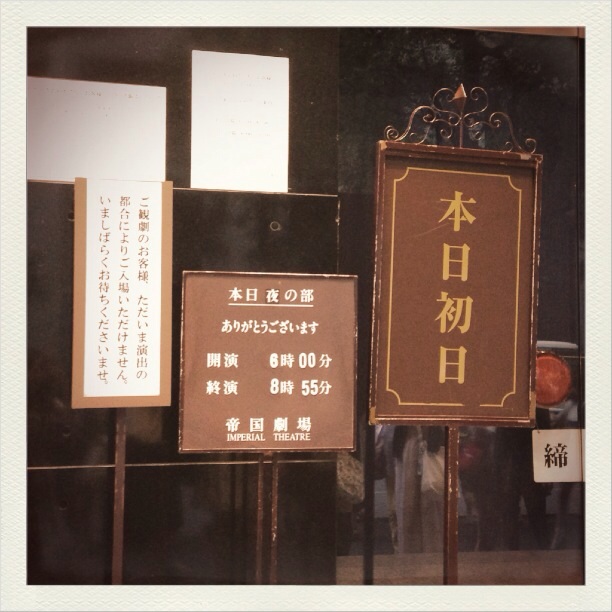 ご観劇のお客様、ただいま演出の
都合によりご入場いただけません。
いましばらくお待ちくださいませ。
本日 夜の部
ありがとうございます
開演 6時00分
終演 8時55分
帝国劇場
IMPERIAL THEATRE
本日初日
締